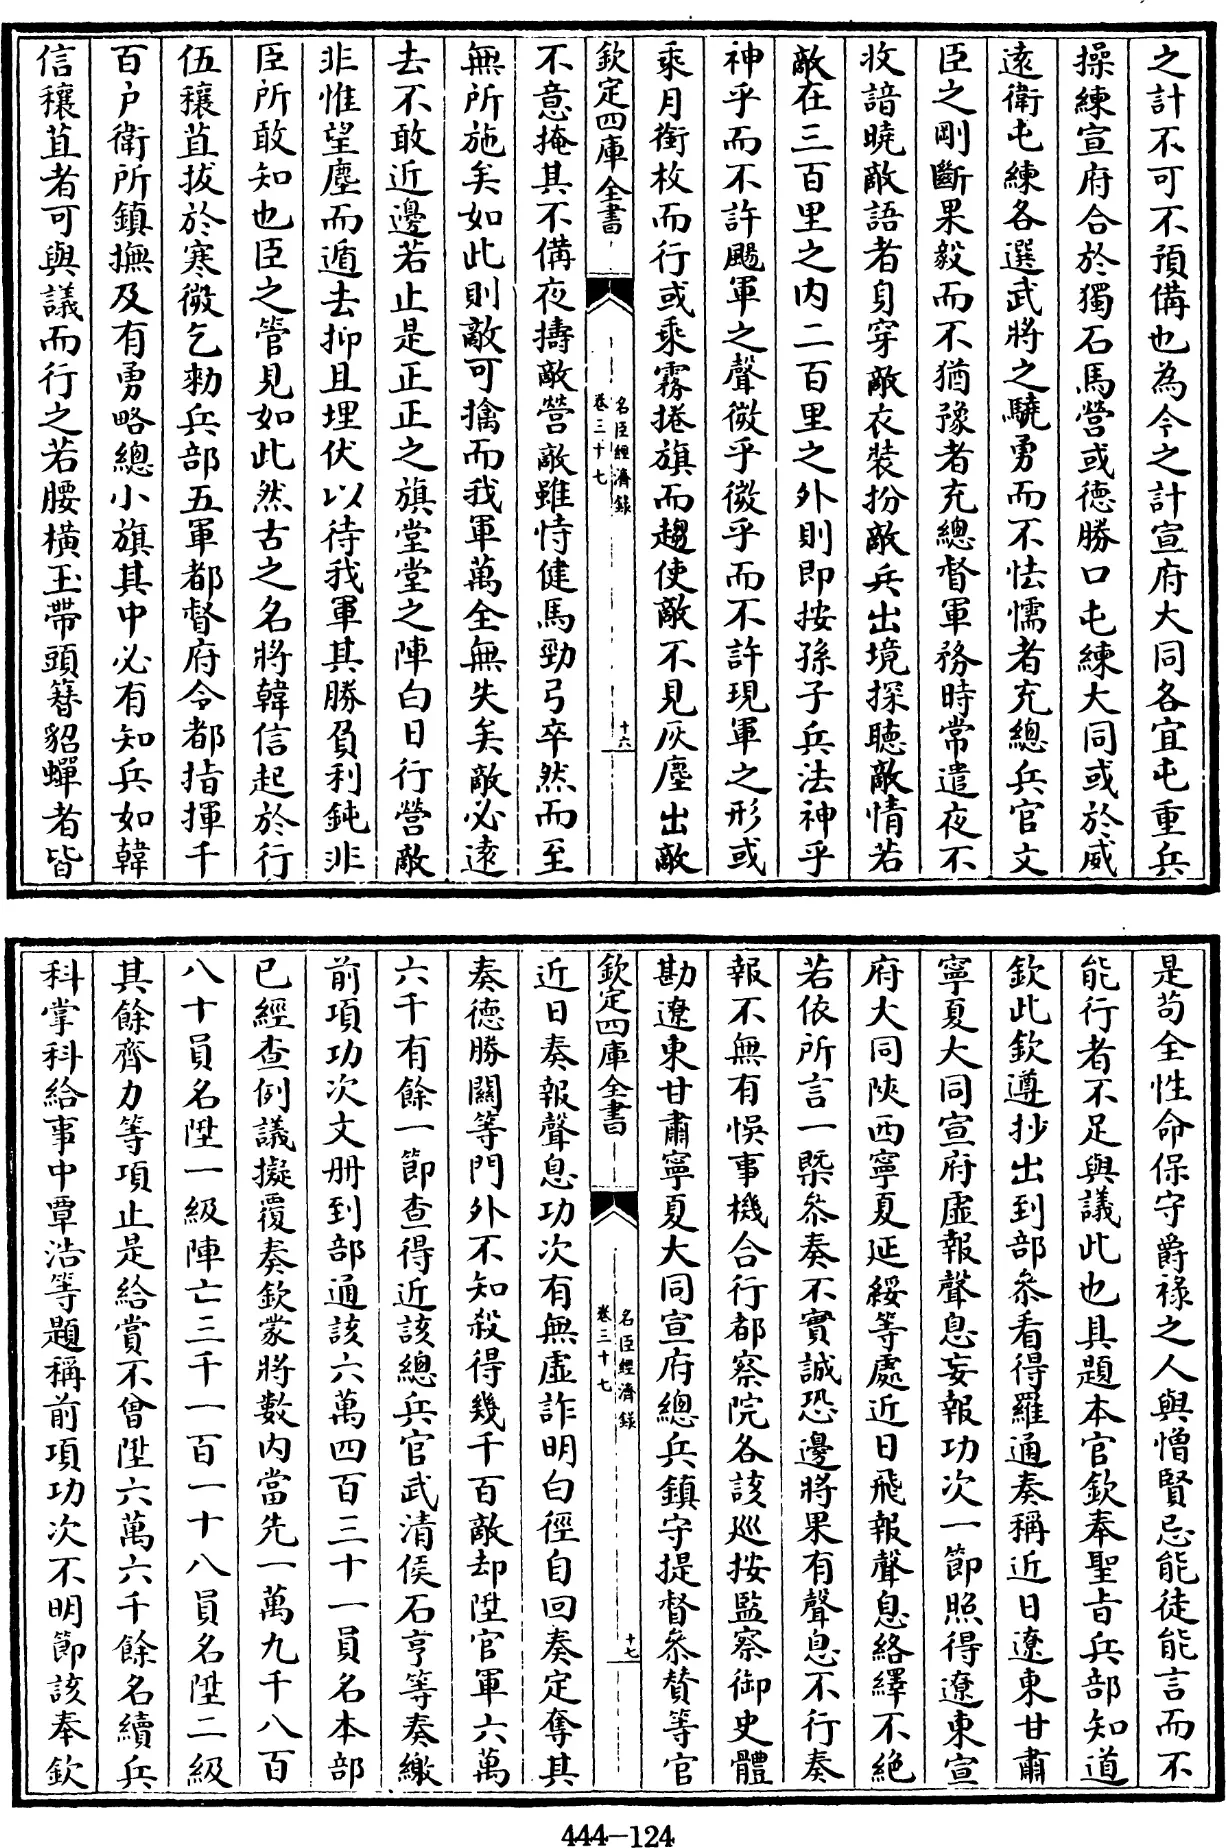 之計不可不預備也為今之計宣府大同各宜屯重兵
操練宣府合於獨石馬營或德勝口屯練大同或於威
遠衛屯練各選武將之驍勇而不怯懦者充總兵官文
臣之剛斷果毅而不猶豫者充總督軍務時常遣夜不
收諳曉敵語者身穿敵衣裝扮敵兵出境探聽敵情若
敵在三百里之內二百里之外則即按孫子兵法神乎
神乎而不許颺軍之聲微乎微乎而不許現軍之形或
乘月銜枚而行或乘霧捲旗而趨使敵不見灰塵出敵
欽定四庫全書
名臣經濟錄
卷三十七
十六
不意掩其不備夜擣敵營敵雖恃健馬勁弓卒然而至
無所施矣如此則敵可擒而我軍萬全無失矣敵必遠
去不敢近邊若止是正正之旗堂堂之陣白日行營敵
非惟望塵而遁去抑且埋伏以待我軍其勝負利鈍非
臣所敢知也臣之管見如此然古之名將韓信起於行
伍穰苴拔於寒微乞勅兵部五軍都督府令都指揮千
百户衛所鎮撫及有勇略總小旗其中必有知兵如韓
信穰苴者可與議而行之若腰橫玉帶頭簪貂蟬者皆
是苟全性命保守爵祿之人與憎賢忌能徒能言而不
能行者不足與議此也具題本官欽奉聖旨兵部知道
欽此欽遵抄出到部參看得羅通奏稱近日遼東甘肅
寧夏大同宣府虛報聲息妄報功次一節照得遼東宣
府大同陝西寧夏延綏等處近日飛報聲息絡繹不絶
若依所言一槩叅奏不實誠恐邊將果有聲息不行奏
報不無有悞事機合行都察院各該廵按監察御史體
勘遼東甘肅寧夏大同宣府總兵鎮守提督叅贊等官
欽定四庫全書
名臣經濟錄
卷三十七
十七
近日奏報聲息功次有無虛詐明白徑自回奏定奪其
奏德勝關等門外不知殺得幾千百敵却陞官軍六萬
六千有餘一節查得近該總兵官武清侯石亨等奏繳
前項功次文册到部通該六萬四百三十一員名本部
已經查例議擬覆奏欽蒙將數內當先一萬九千八百
八十員名陞一級陣亡三千一百一十八員名陞二級
其餘齊力等項止是給賞不曾陞六萬六千餘名續兵
科掌科給事中覃浩等題稱前項功次不明節該奉欽
444-124